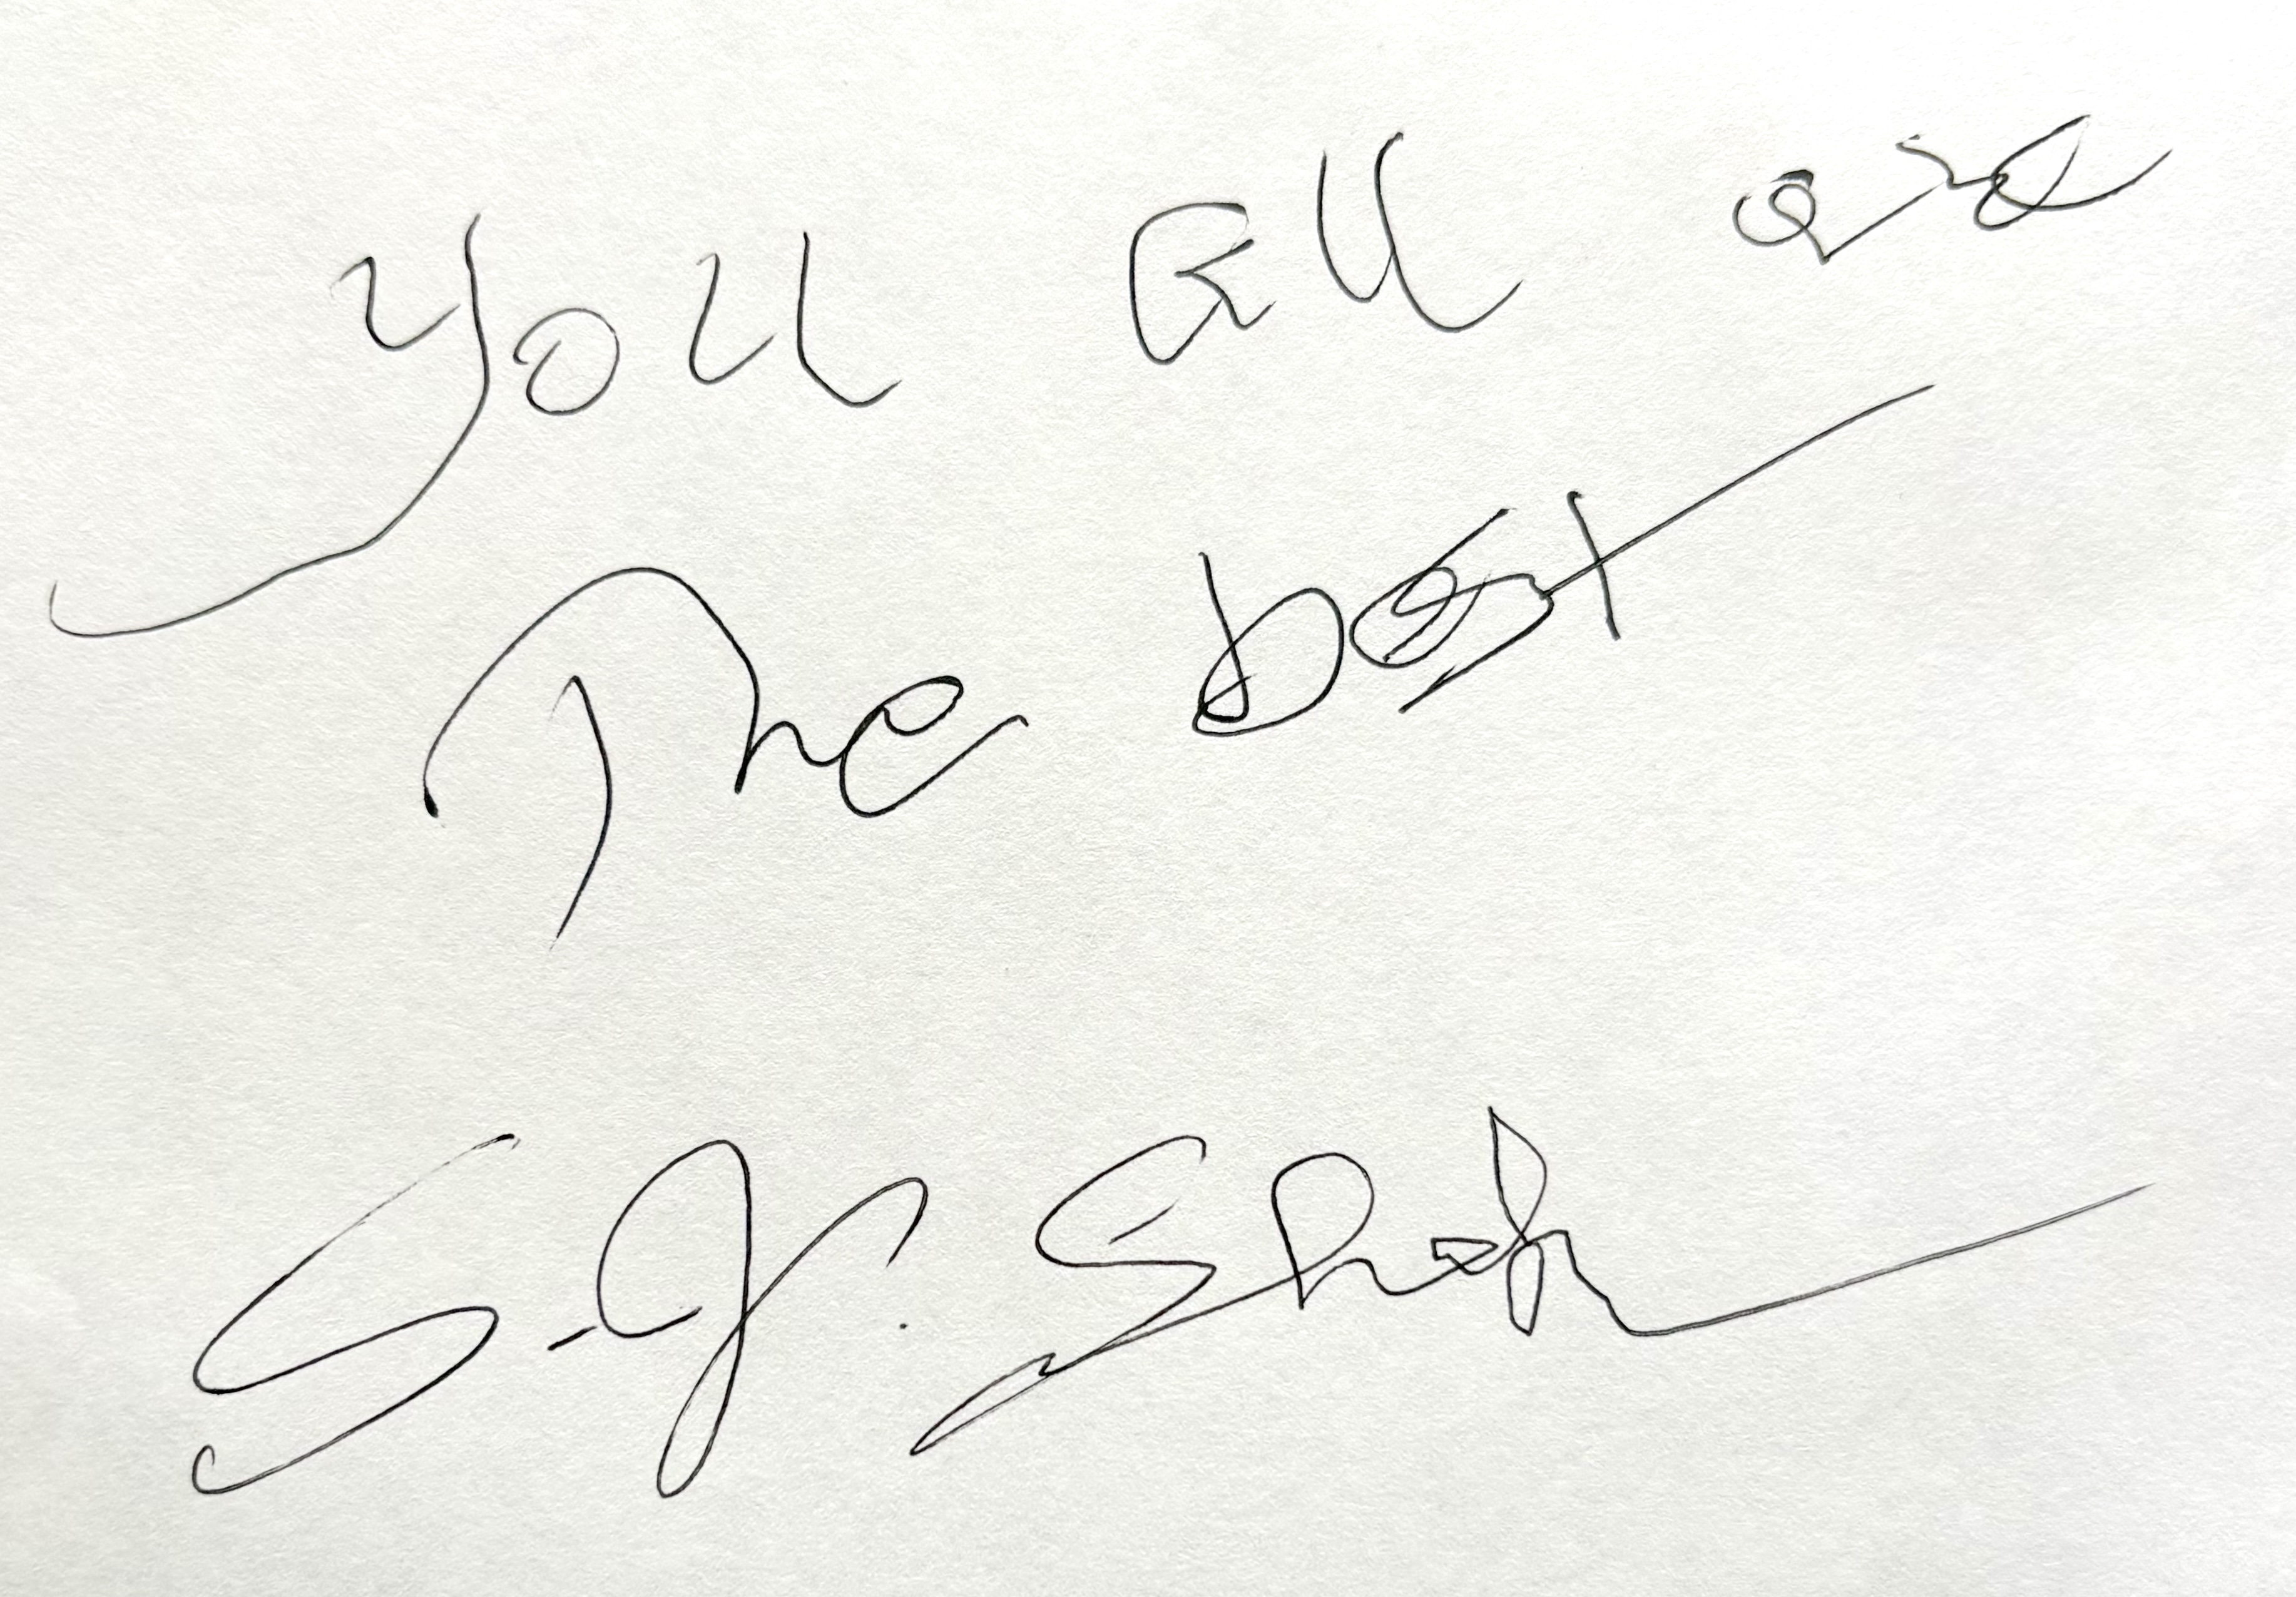 You all are
The best
S.J. Shah